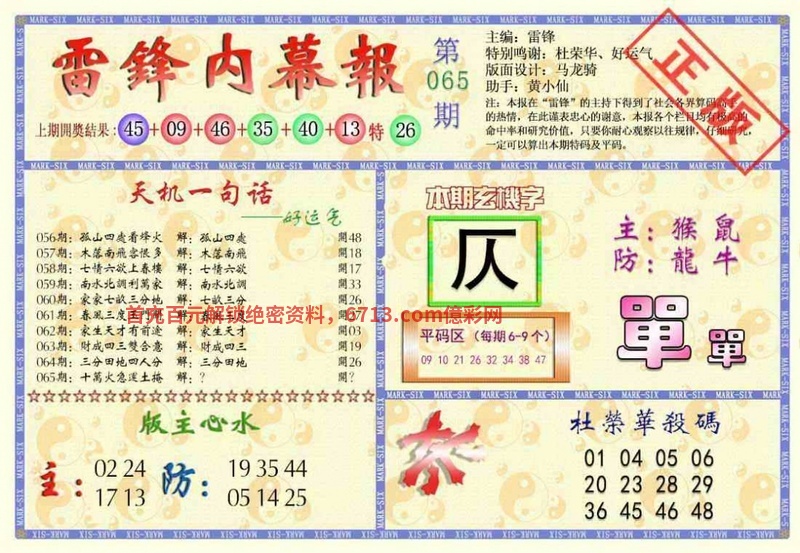 雷鋒内幕報
第
065
期
主编：雷锋
特别鸣谢：杜荣华、好运气
版面设计：马龙骑
助手：黄小仙
注：本报在“雷锋”的主持下得到了社会各界算码高手
的热情，在此谨表忠心的谢意，本报各个栏目均有极高的
命中率和研究价值，只要你耐心观察以往规律，仔细研究，
一定可以算出本期特码及平码。
正版
上期開獎結果：45+09+46+35+40+13特26
天机一句话
——好运气
056期：孤山四處看烽火 解：孤山四處 開48
057期：木落南飛客恨多 解：木落南飛 開18
058期：七情六欲上春樓 解：七情六欲 開17
059期：南水北調利萬家 解：南水北調 開33
060期：家家七畝三分地 解：七畝三分 開26
首充百元解锁绝密资料，6713.com億彩网
061期：春風三度
062期：家生天才有前途 解：家生天才 開03
063期：財成四三雙合意 解：財成四三 開19
064期：三分田地四人分 解：三分田地 開26
065期：十萬火急運土掩 解：？ 開？
本期玄機字
仄
主：猴 鼠
防：龍 牛
平码区（每期6-9个）
09 10 21 26 32 34 38 47
單 單
☆☆☆☆☆☆☆☆☆☆☆☆☆☆☆☆☆☆☆☆☆☆☆☆☆☆
版主心水
主：
02 24
17 13
防：
19 35 44
05 14 25
灰
杜榮華殺碼
01 04 05 06
20 23 28 29
36 45 46 48